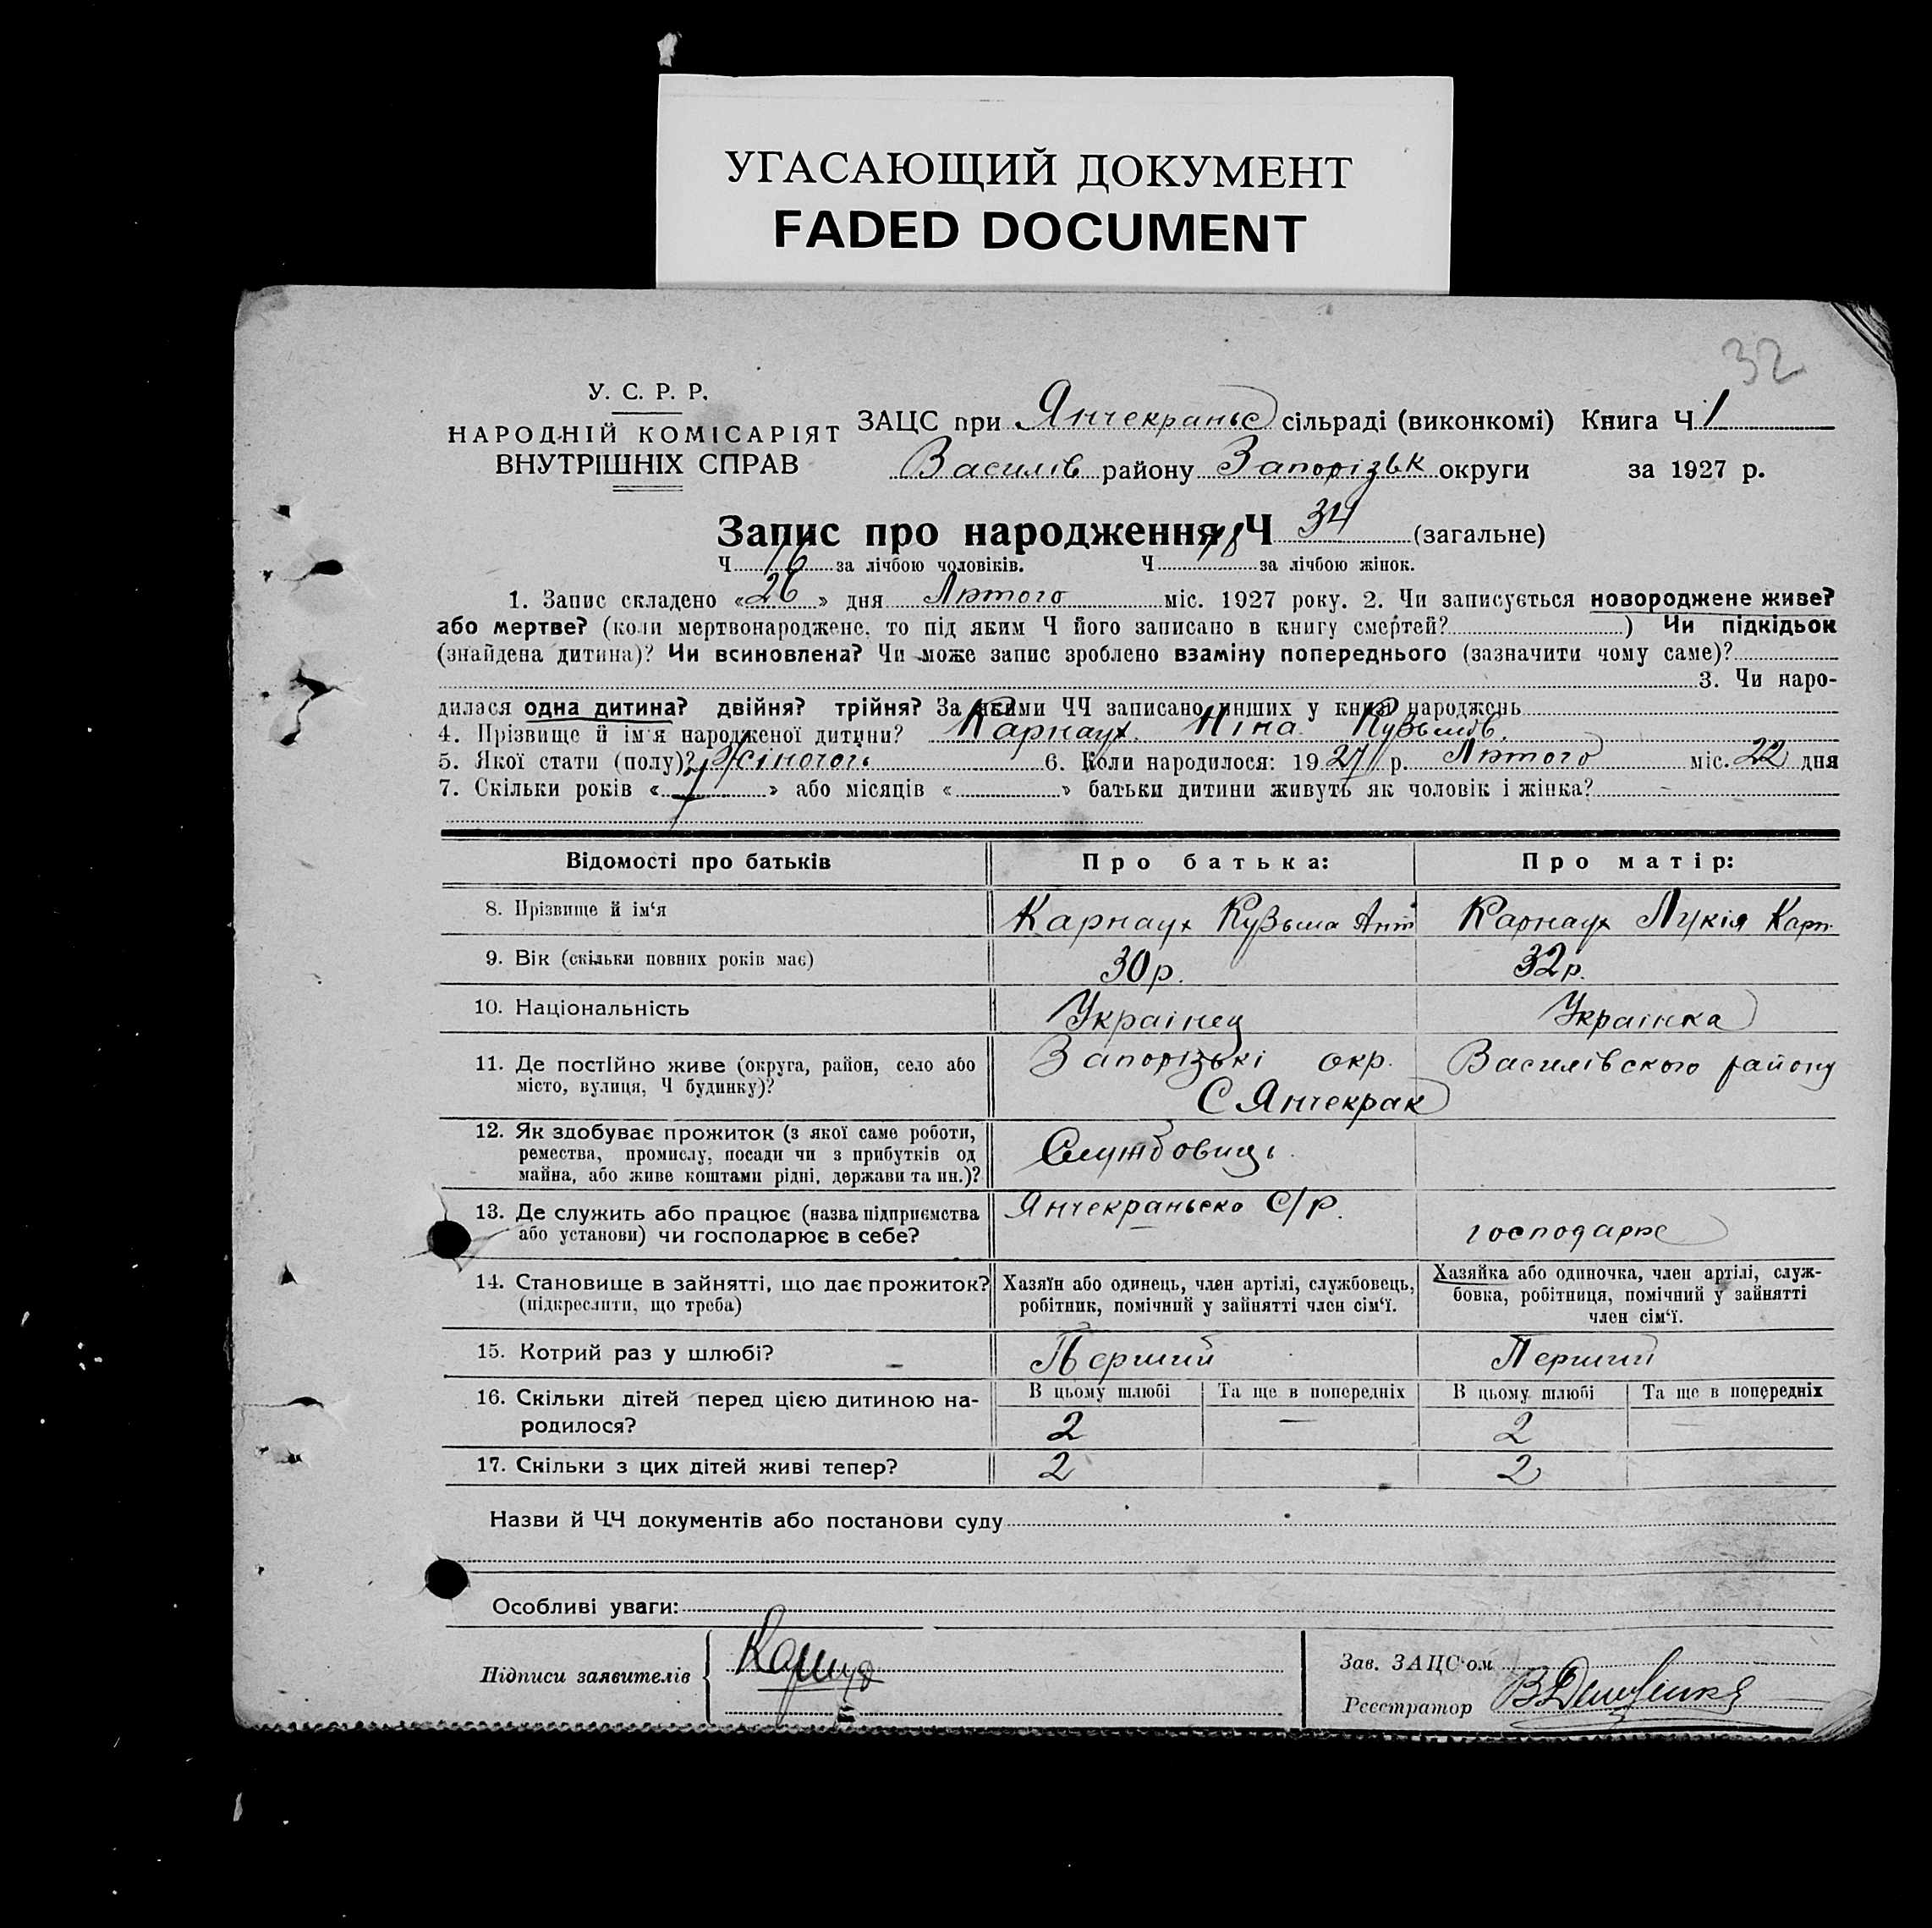 УГАСАЮЩИЙ ДОКУМЕНТ
FADED DOCUMENT
32
У. С. Р. Р.
НАРОДНІЙ КОМІСАРІЯТ
ВНУТРІШНІХ СПРАВ
ЗАЦС при Янчекраньс сільраді (виконкомі) Книга Ч 1
Василів району Запорізьк округи за 1927 р.
Запис про народження Ч 34 (загальне)
Ч 16 за лічбою чоловіків. Ч 18 за лічбою жінок.
1. Запис складено «26» дня Лютого міс. 1927 року. 2. Чи записується новороджене живе?
або мертве? (коли мертвонароджене, то під яким Ч його записано в книгу смертей? ) Чи підкідьок
(знайдена дитина)? Чи всиновлена? Чи може запис зроблено взаміну попереднього (зазначити чому саме)?
3. Чи наро-
дилася одна дитина? двійня? трійня? За якими ЧЧ записано инших у книзі народжень
4. Прізвище й ім'я народженої дитини? Карнаух Ніна Кузьмів.
5. Якої стати (полу)? Жіночої 6. Коли народилося: 1927 р. Лютого міс. 22 дня
7. Скільки років «7» або місяців « » батьки дитини живуть як чоловік і жінка?
Відомості про батьків Про батька: Про матір:
8. Прізвище й ім‘я Карнаух Кузьма Ант Карнаух Лукія Карп.
9. Вік (скільки повних років має) 30 р. 32 р.
10. Національність Украінец Украінка
11. Де постійно живе (округа, район, село або Запорізькі окр. Василівского району
місто, вулиця, Ч будинку)? С Янчекрак
12. Як здобуває прожиток (з якої саме роботи, Службовиць.
ремества, промислу, посади чи з прибутків од
майна, або живе коштами рідні, держави та ин.)?
13. Де служить або працює (назва підприємства Янчекраньско С/р.
або установи) чи господарює в себе? господарює
14. Становище в зайнятті, що дає прожиток? Хазяїн або одинець, член артілі, службовець, Хазяйка або одиночка, член артілі, служ-
(підкреслити, що треба) робітник, помічний у зайнятті член сім‘ї. бовка, робітниця, помічний у зайнятті
член сім‘ї.
15. Котрий раз у шлюбі? Перший Перший
16. Скільки дітей перед цією дитиною на- В цьому шлюбі Та ще в попередніх В цьому шлюбі Та ще в попередніх
родилося? 2 — 2 —
17. Скільки з цих дітей живі тепер? 2 2
Назви й ЧЧ документів або постанови суду
Особливі уваги:
Підписи заявителів
Зав. ЗАЦС‘ом
Реєстратор